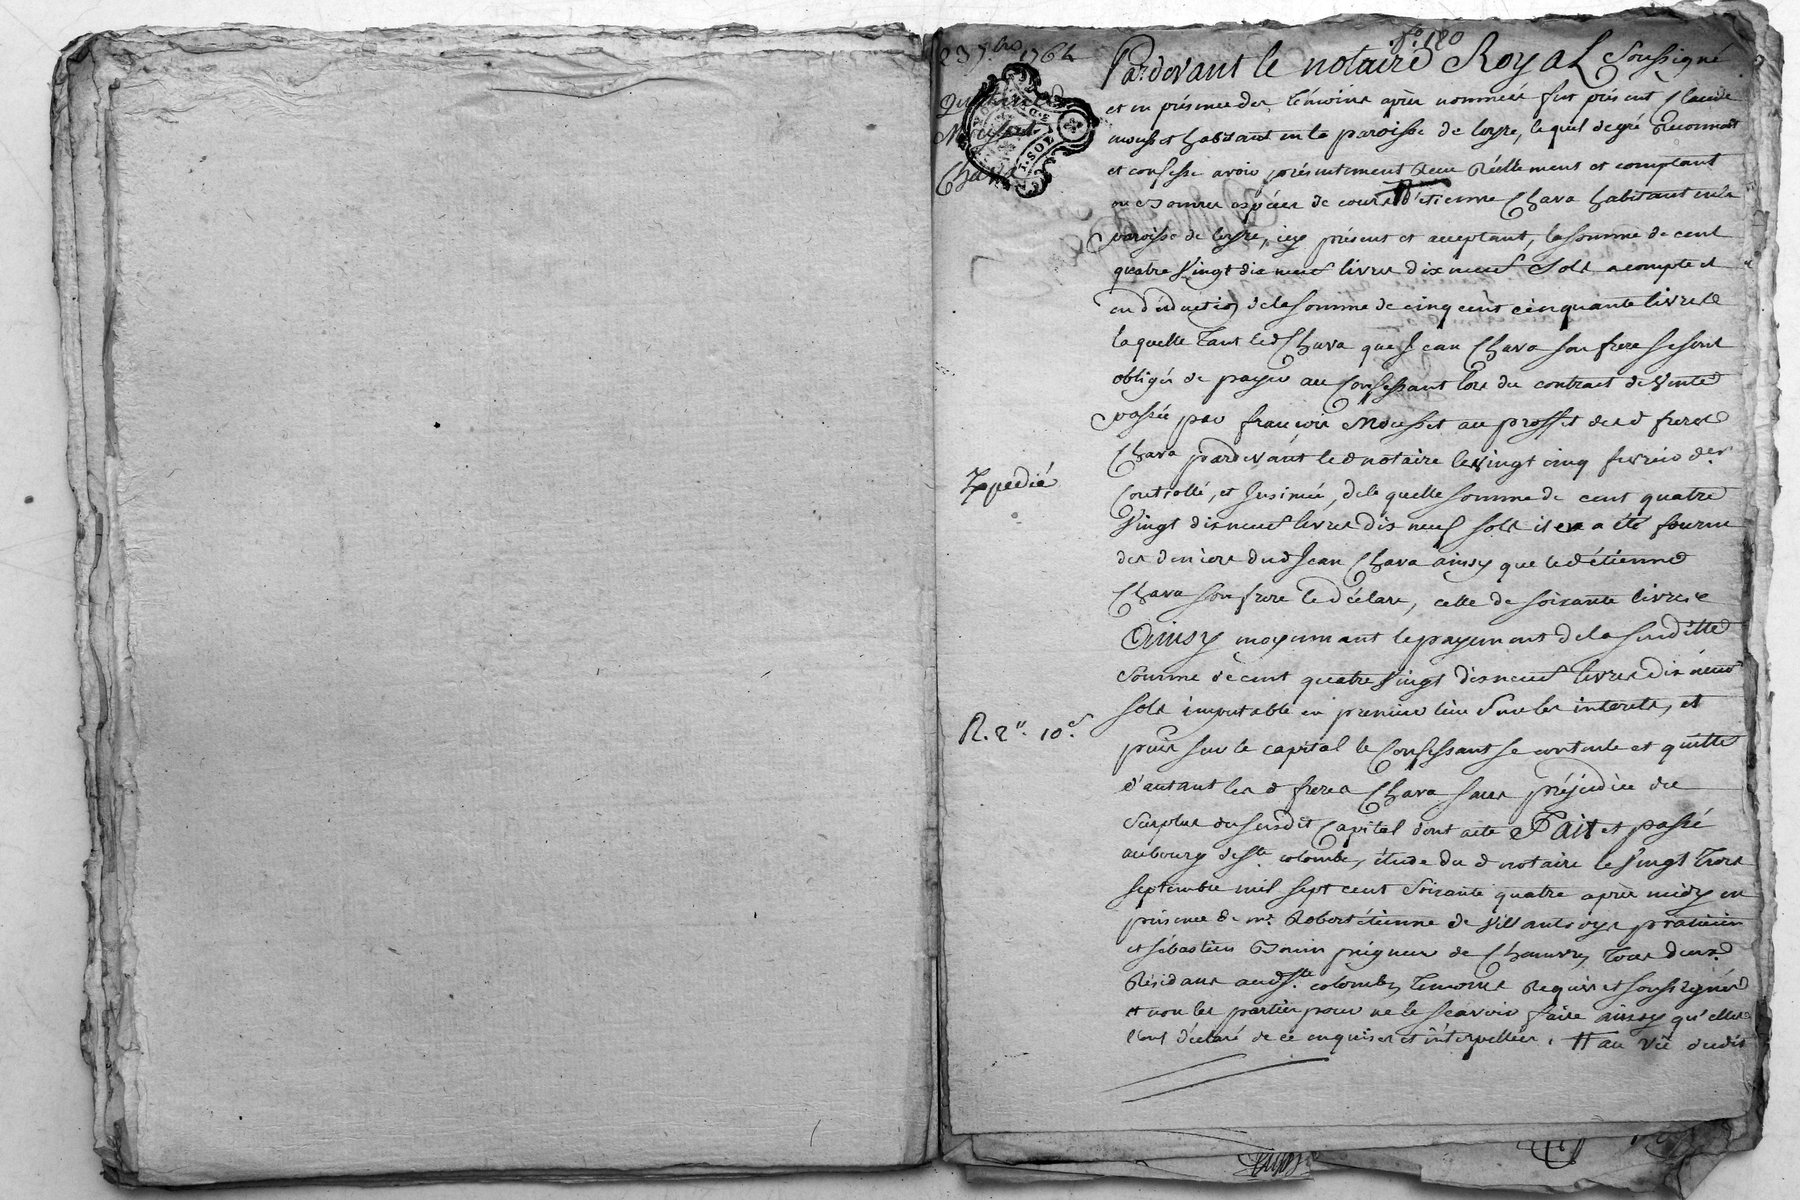 fo. 180
23 7bre 1764
Quittance
Mousset
Chava
Pardevant le notaire Royal Soussigné
et en présence des témoins après nommés fut présent Claude
mousset habitant en la paroisse de loyre, lequel de gré Reconnait
et confesse avoir présentement Receu Réellement et comptant
en espèces de cours d'étienne Chava habitant en la
paroisse de loyre, icy présent et acceptant, la somme de cent
quatre vingt dix neuf livres dix neuf sols acompte et
en déduction de la somme de cinq cent cinquante livres
laquelle tant led Chava que Jean Chava son frere se sont
obligés de payer au Confessant lors du contract de vente
passée par françois Mousset au proffit des d freres
Chava pardevant le d notaire le vingt cinq fevrier der
Controllé, et Insinué, de la quelle somme de cent quatre
vingt dix neuf livres dix neuf sols il en a été fourni
des deniers dud Jean Chava ainsy que led étienne
Chava son frere le déclare, celle de soixante livres
Ainsy moyennant le payement de la susditte
somme de cent quatre vingt dix neuf livres dix neuf
sols imputable en premier lieu sur les interets, et
puis sur le capital le Confessant se contente et quitte
d'autant les d freres Chava sans préjudice du
surplus du susdit Capital dont acte Fait et passé
au bourg de Ste colombe, étude du d notaire le vingt trois
septembre mil sept cent soixante quatre après midy en
présence de mr Robert étienne de praticien
et sébastien Bonin peigneur de Chanvre, tous deux
Résidans aud Ste colombe, temoins Requis et soussignés
et non les parties pour ne le scavoir faire ainsy qu'elles
l'ont déclaré de ce enquises et interpellées. # au vû dudit
Expedié
R. 2tt. 10s.